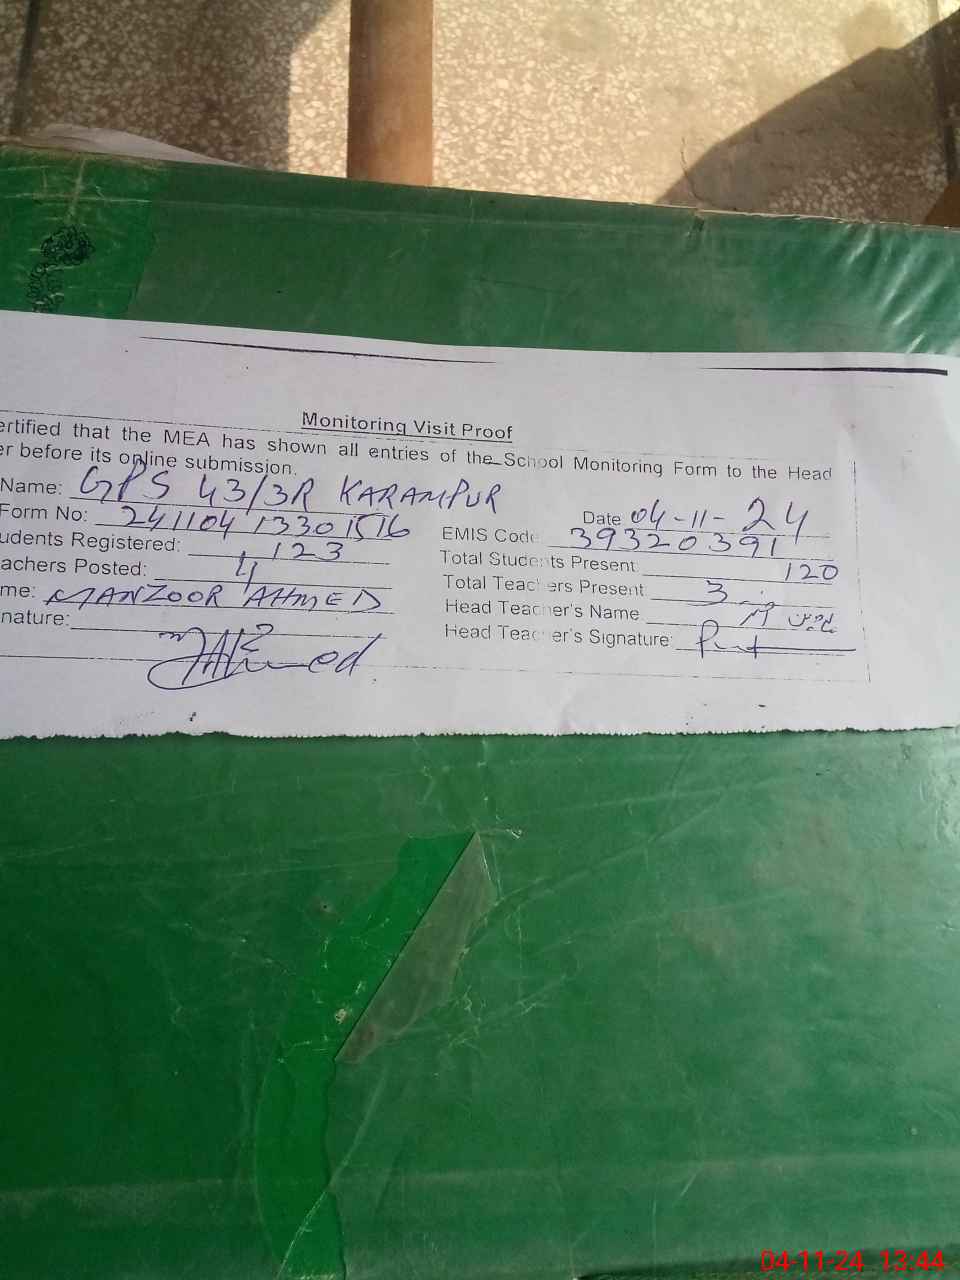 Monitoring Visit Proof
ertified that the MEA has shown all entries of the School Monitoring Form to the Head
er before its online submission.
Name: GPS 43/3R KARAMPUR
Date 04-11-24
Form No: 241104 1330 1516
EMIS Code 39320391
udents Registered: 123
Total Students Present 120
achers Posted: 4
Total Teachers Present 3
me: MANZOOR AHMED
Head Teacher's Name
nature:
Head Teacher's Signature:
04-11-24 13:44